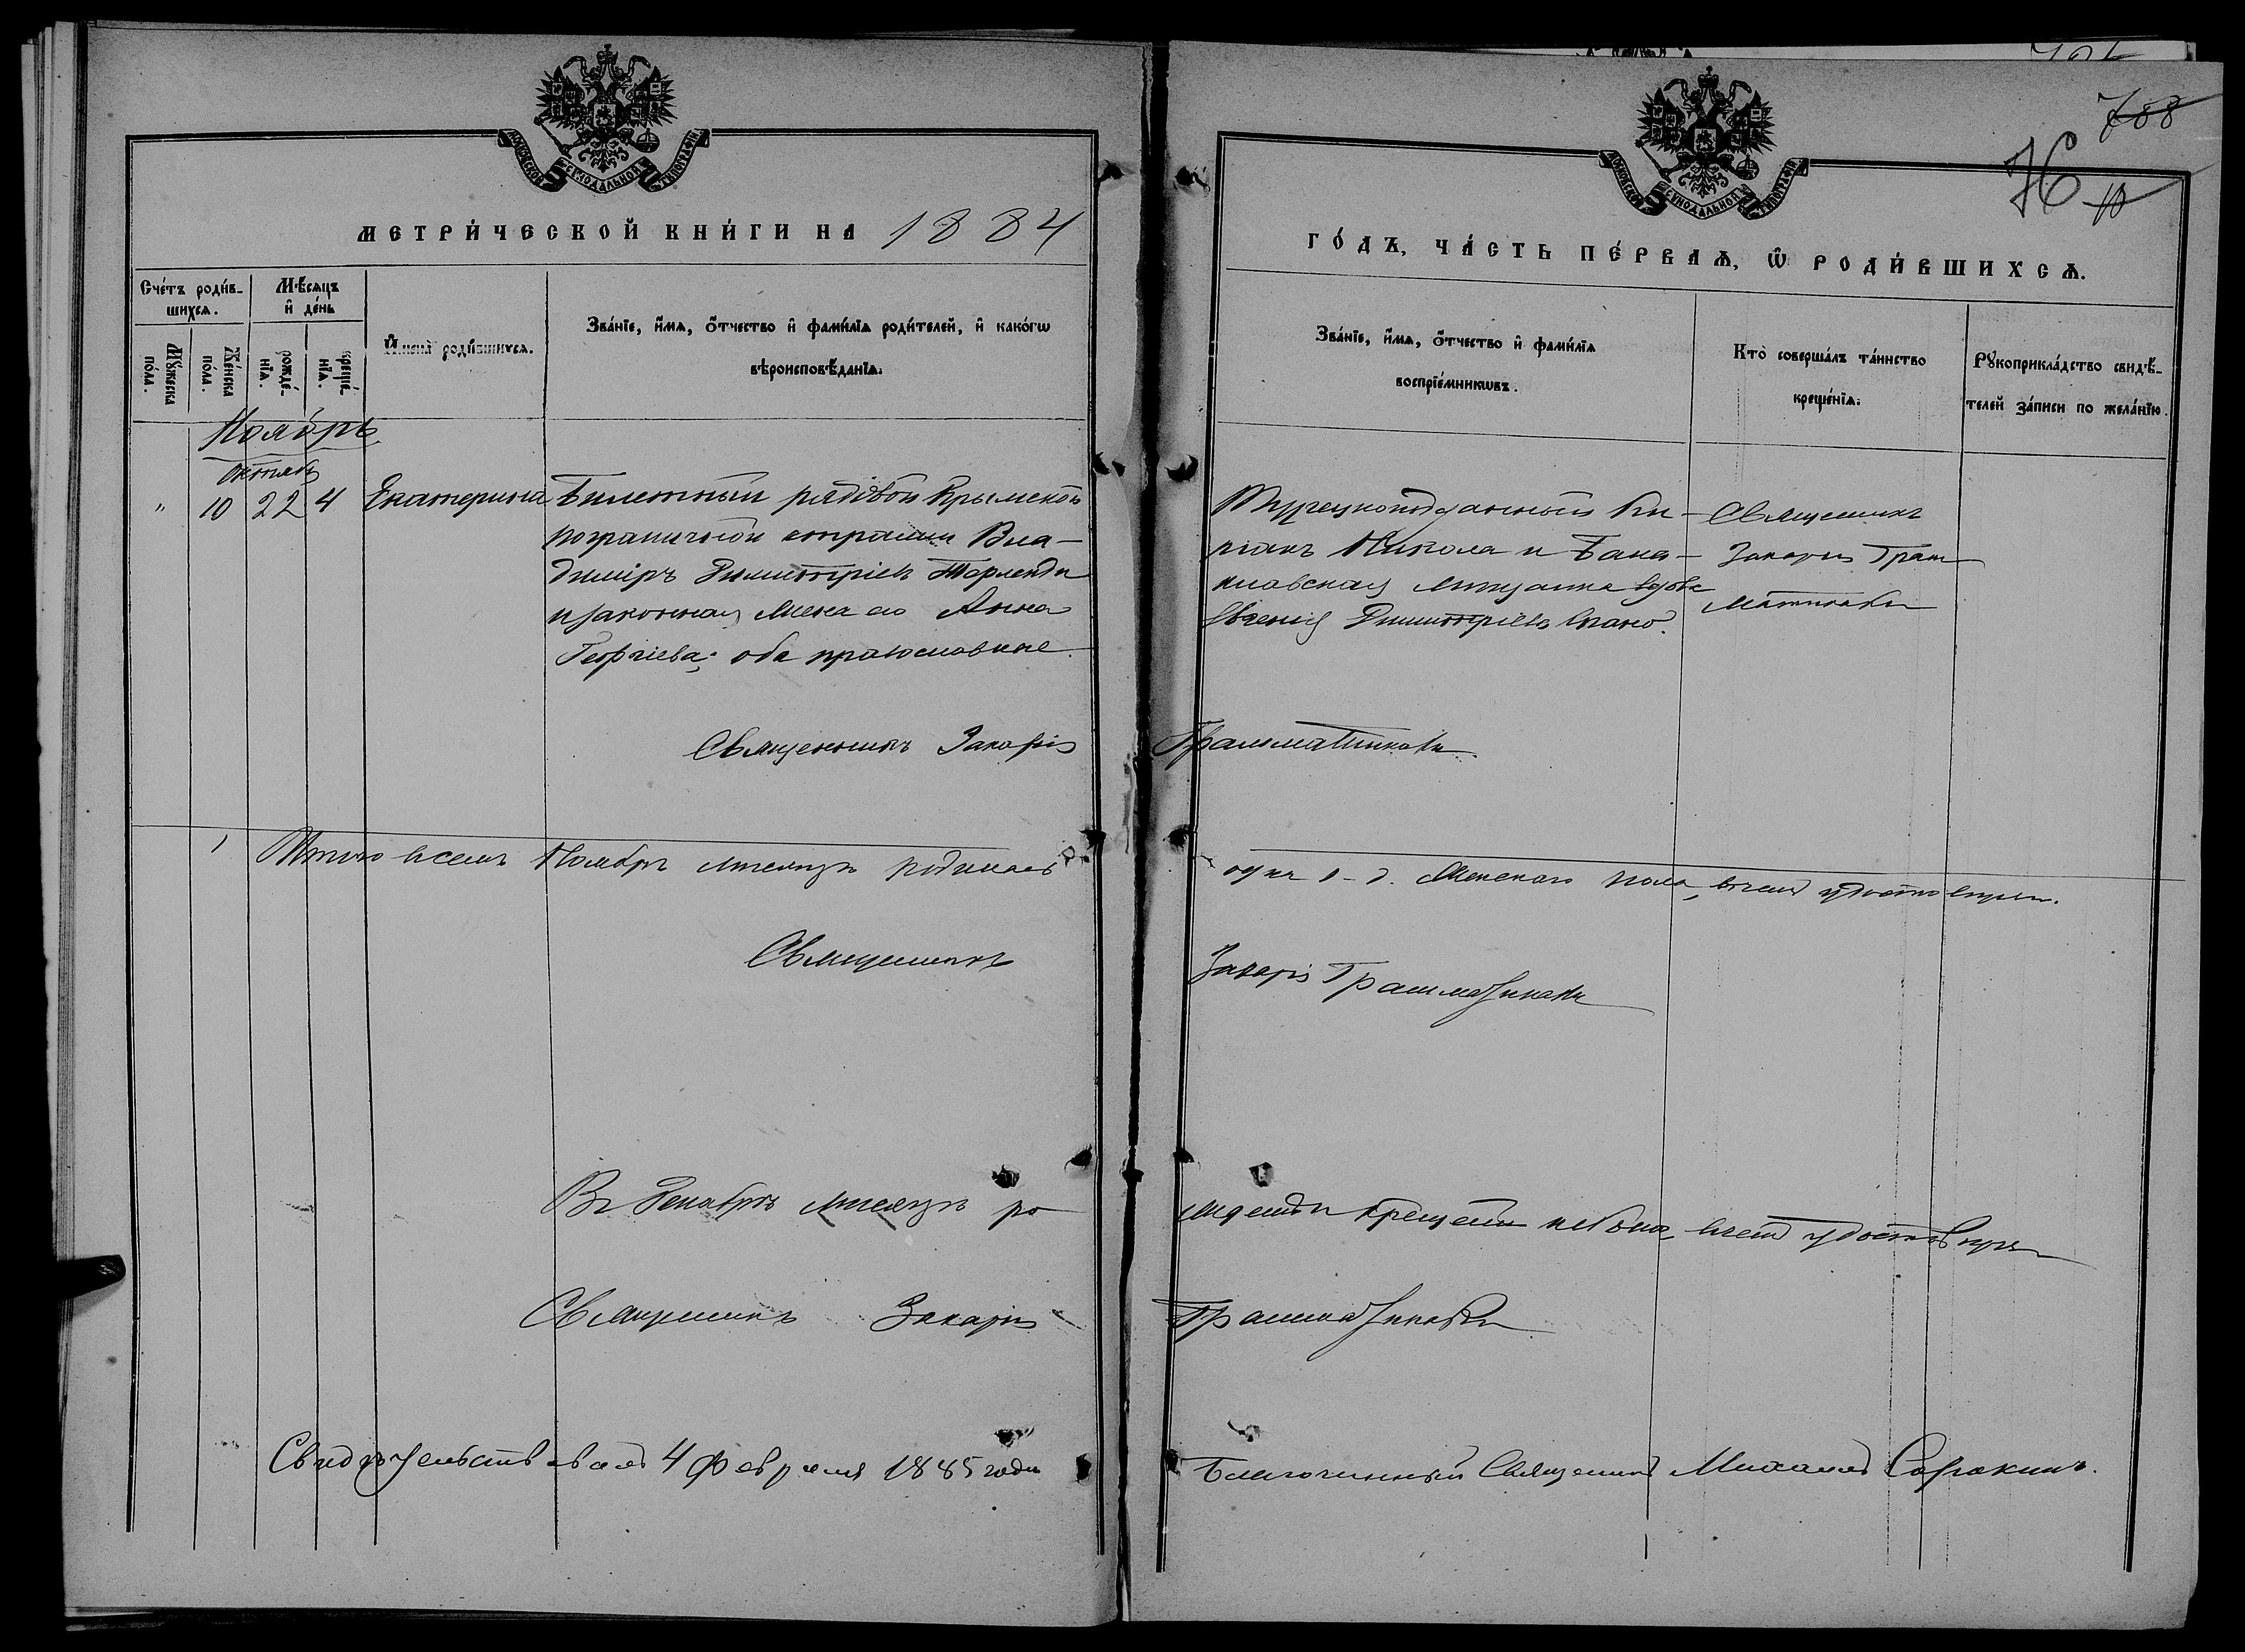 788
Н
10
МОСКОВСКОЙ СѴНОДАЛЬНОЙ ТИПОГРАФІИ
МОСКОВСКОЙ СѴНОДАЛЬНОЙ ТИПОГРАФІИ
МЕТРИ́ЧЕСКОЙ КНИ́ГИ НА 1884
ГО́ДЪ, ЧА́СТЬ ПЕ́РВАѦ, Ѡ РОДИ́ВШИХСѦ.
Сче́тъ роди́в-
шихсѧ.
Мꙋ́жеска по́ла.
Же́нска по́ла.
Мѣ́сяцъ
и҆ де́нь
рожде́-нїѧ.
креще́-нїѧ.
И҆мена̀ роди́вшихсѧ.
Зва́нїе, и҆́мѧ, ѻ҆́тчество и҆ фами́лїѧ роди́телей, и҆ како́гѡ
вѣроисповѣ́данїѧ.
Зва́нїе, и҆́мѧ, ѻ҆́тчество и҆ фами́лїѧ
воспрїе́мникѡвъ.
Кто̀ соверша́лъ та́инство
креще́нїѧ.
Рꙋкоприкла́дство свидѣ́-
телей за́писи по жела́нїю.
Ноябрь
Октябр
" 10 22 4 Екатерина
Билетный рядовой Крымской
пограничной стражи Вла-
димиръ Димитріевъ Терленди
и законная жена его Анна
Георгіева; оба православные.
Турецкоподданный Ки-
ріакъ Никола и Бала-
клавская мѣщанка вдова
Евгенія Димитріева
Священникъ
Захарія Грам
матикаки
Священникъ Захарія Грамматикаки
1 Итого всего Ноябрѣ мѣсяцѣ родилась одна 1 - д. Женскаго пола, въ чемъ удостовѣряю.
Священникъ Захарія Грамматикаки
Въ Декабрѣ мѣсяцѣ ро жденій крещеній небыло, въ чемъ удостовѣряю
Священникъ Захарія Грамматикаки
Свидѣтельствовалъ 4 Февраля 1885 года Благочинный Священникъ Михаилъ Сорокинъ.